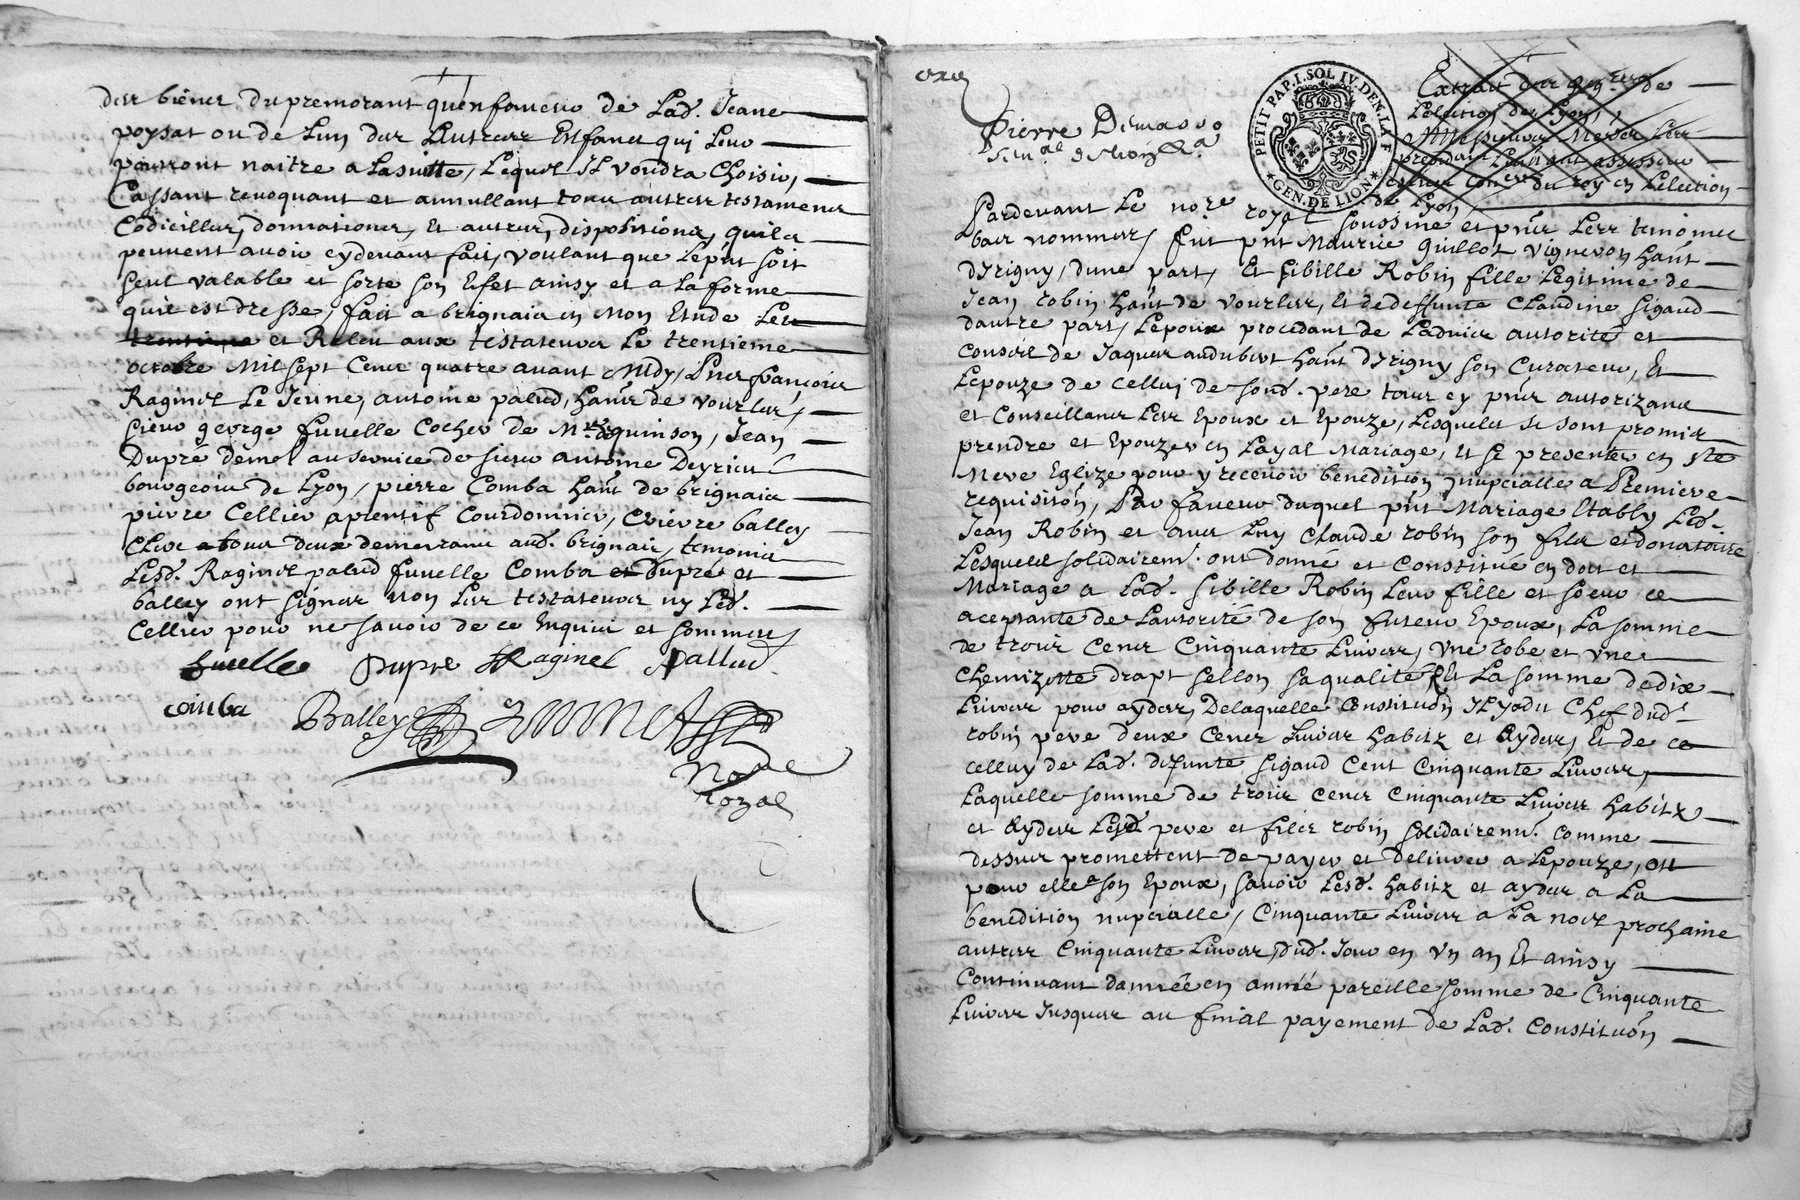 des biens du premorant qu'en faveur de Lad. Jeane
poysat ou de Lun des Autres Enfans qui Leur
pouront naitre a Lasuitte, Lequel Il voudra Choisir,
Cassant revoquant et annullant tous autres testamens
Codicilles, donnations, et autres, dispositions, quils
peuvent avoir cydevant fait, voulant que Lepnt soit
seul valable et sorte son Effet ainsy et a La forme
quil est dresse, fait a brignais en Mon Etude Les
et Releu aux testateurs Le trentieme
octobre Mil sept Cens quatre avant Midy, Pnts françois
Raginel Le Jeune, antoine palud, hants de vourles,
sieur george fuvelle Cocher de Mr de quinson, Jean
Dupré demt au service de sieur antoine Deyrieu
bourgeois de Lyon, pierre Comba hant de brignais
pierre Cellier aprentif Courdonnier, Balley
Clerc tous deux demeurans aud. brignais, temoins
Lesd. Raginel palud fuvelle Comba et dupré et
balley ont signes non Les testateurs ny Led.
Cellier pour ne savoir de ce Enquis et sommes
fuvelle Dupre Raginel Pallud
comba Balley
No.re
Royal
PETIT PAP. I. SOL IV. DEN. LA F
GEN. DE LION
Extrait des de
Lelection de Lyon,
president Lieutenant assesseur
du roy en Lelection
de Lyon
Pierre
Pardevant Le no.re royal soussine et pnts Les temoins
bas nommes, fut pnt Maurice guillot vigneron hant
dirigny, dune part, Et sibille Robin fille Legitime de
Jean robin hant de vourles, Et dedeffunte Claudine sigaud
dautre part, Lepoux procedant de Ladvis autorité et
conseil de Jaques audubert hant dirigny son Curateur, Et
Lepouze de Celluj de sond. pere tous cy pnts autorizans
et Conseillans Les Epoux et Epouze, Lesquels se sont promis
prendre et Epouzer en Layal Mariage, Et se presenter en ste
Mere Eglyze pour y recevoir benedition nupcialle a Premiere
requisiton, En faveur duquel pnt Mariage Etably Led.
Jean Robin et avec Luy Claude robin son fils et donatoire
Lesquels solidairemt. ont donné et Constitué en dot et
Mariage a Lad. sibille Robin Leur fille et soeur ce
aceptante de Lautorité de son futeur Epoux, La somme
de trois Cens Cinquante Livres, vne robe et vne
chemizette drapt sellon sa qualité, Et La somme de dix
Livres pour aydes, Delaquelle Constituôn Il y a du Chef dud.
robin pere deux Cens Livres habitz et Aydes, Et de ce
celluy de Lad. defunte sigaud Cent Cinquante Livres,
Laquelle somme de trois Cens Cinquante Livres habitz
et Aydes Lesd. pere et fils robin solidairemt. Comme
dessus promettent de payer et delivrer a Lepouze, ou
pour elle a son Epoux, savoir Lesd. habitz et aydes a La
benedition nupcialle, Cinquante Livres a La noel prochaine
autres Cinquante Livres, dud. Jour en vn an Et ainsy
Continuant dannée en année pareille somme de Cinquante
Livres Jusques au final payement de Lad. Constituôn